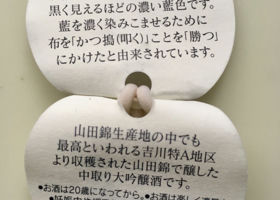 黒く見えるほどの濃い藍色です。
藍を濃く染みこませるために
布を「かつ搗(叩く)」ことを「勝つ」
にかけたと由来されています。
山田錦生産地の中でも
最高といわれる吉川特A地区
より収穫された山田錦で醸した
中取り大吟醸酒です。
●お酒は20歳になってから。●お酒は楽しく適量